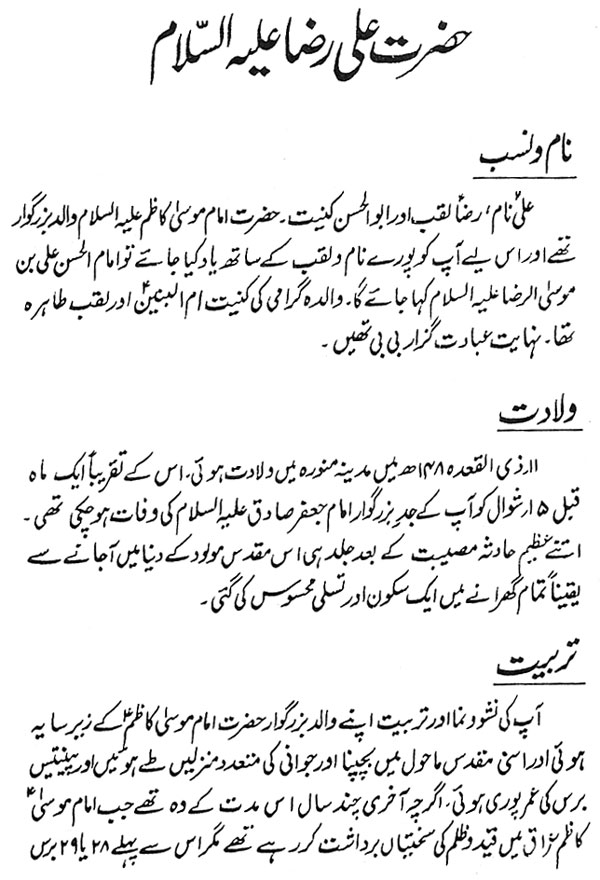 حضرت علی رضا علیہ السّلام
نام و نسب
علیؑ نام، رضاؑ لقب اور ابوالحسن کنیت۔ حضرت امام موسیٰ کاظم علیہ السلام والد بزرگوار
تھے اور اس لیے آپ کو پورے نام و لقب کے ساتھ یاد کیا جائے تو امام الحسن علی بن
موسیٰ الرضا علیہ السلام کہا جائے گا۔ والدہ گرامی کی کنیت ام البنینؑ اور لقب طاہرہ
تھا۔ نہایت عبادت گزار بی بی تھیں۔
ولادت
۱۱ر ذی القعدہ ۱۴۸ھ میں مدینہ منورہ میں ولادت ہوئی۔ اس کے تقریباً ایک ماہ
قبل ۱۵ر شوال کو آپ کے جدِ بزرگوار امام جعفر صادق علیہ السلام کی وفات ہو چکی تھی۔
اتنے عظیم حادثہ مصیبت کے بعد جلد ہی اس مقدس مولود کے دنیا میں آجانے سے
یقیناً تمام گھرانے میں ایک سکون اور تسلی محسوس کی گئی۔
تربیت
آپ کی نشو و نما اور تربیت اپنے والد بزرگوار حضرت امام موسیٰ کاظمؑ کے زیر سایہ
ہوئی اور اسی مقدس ماحول میں بچپنا اور جوانی کی متعدد منزلیں طے ہوئیں اور پینتیس
برس کی عمر پوری ہوئی۔ اگرچہ آخری چند سال اس مدت کے وہ تھے جب امام موسیٰؑ
کاظم عراق میں قید و ظلم کی سختیاں برداشت کر رہے تھے مگر اس سے پہلے ۲۸ یا ۲۹ برس